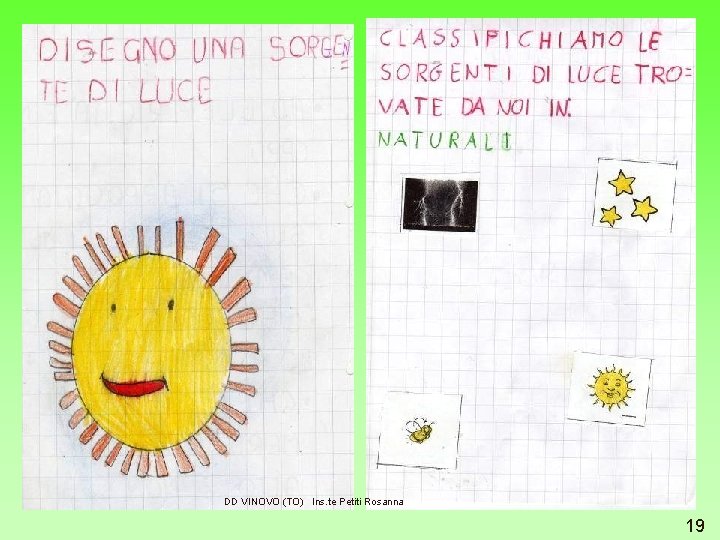 DISEGNO UNA SORGEN=
TE DI LUCE
CLASSIFICHIAMO LE
SORGENTI DI LUCE TRO=
VATE DA NOI IN:
NATURALI
DD VINOVO (TO) Ins.te Petiti Rosanna
19